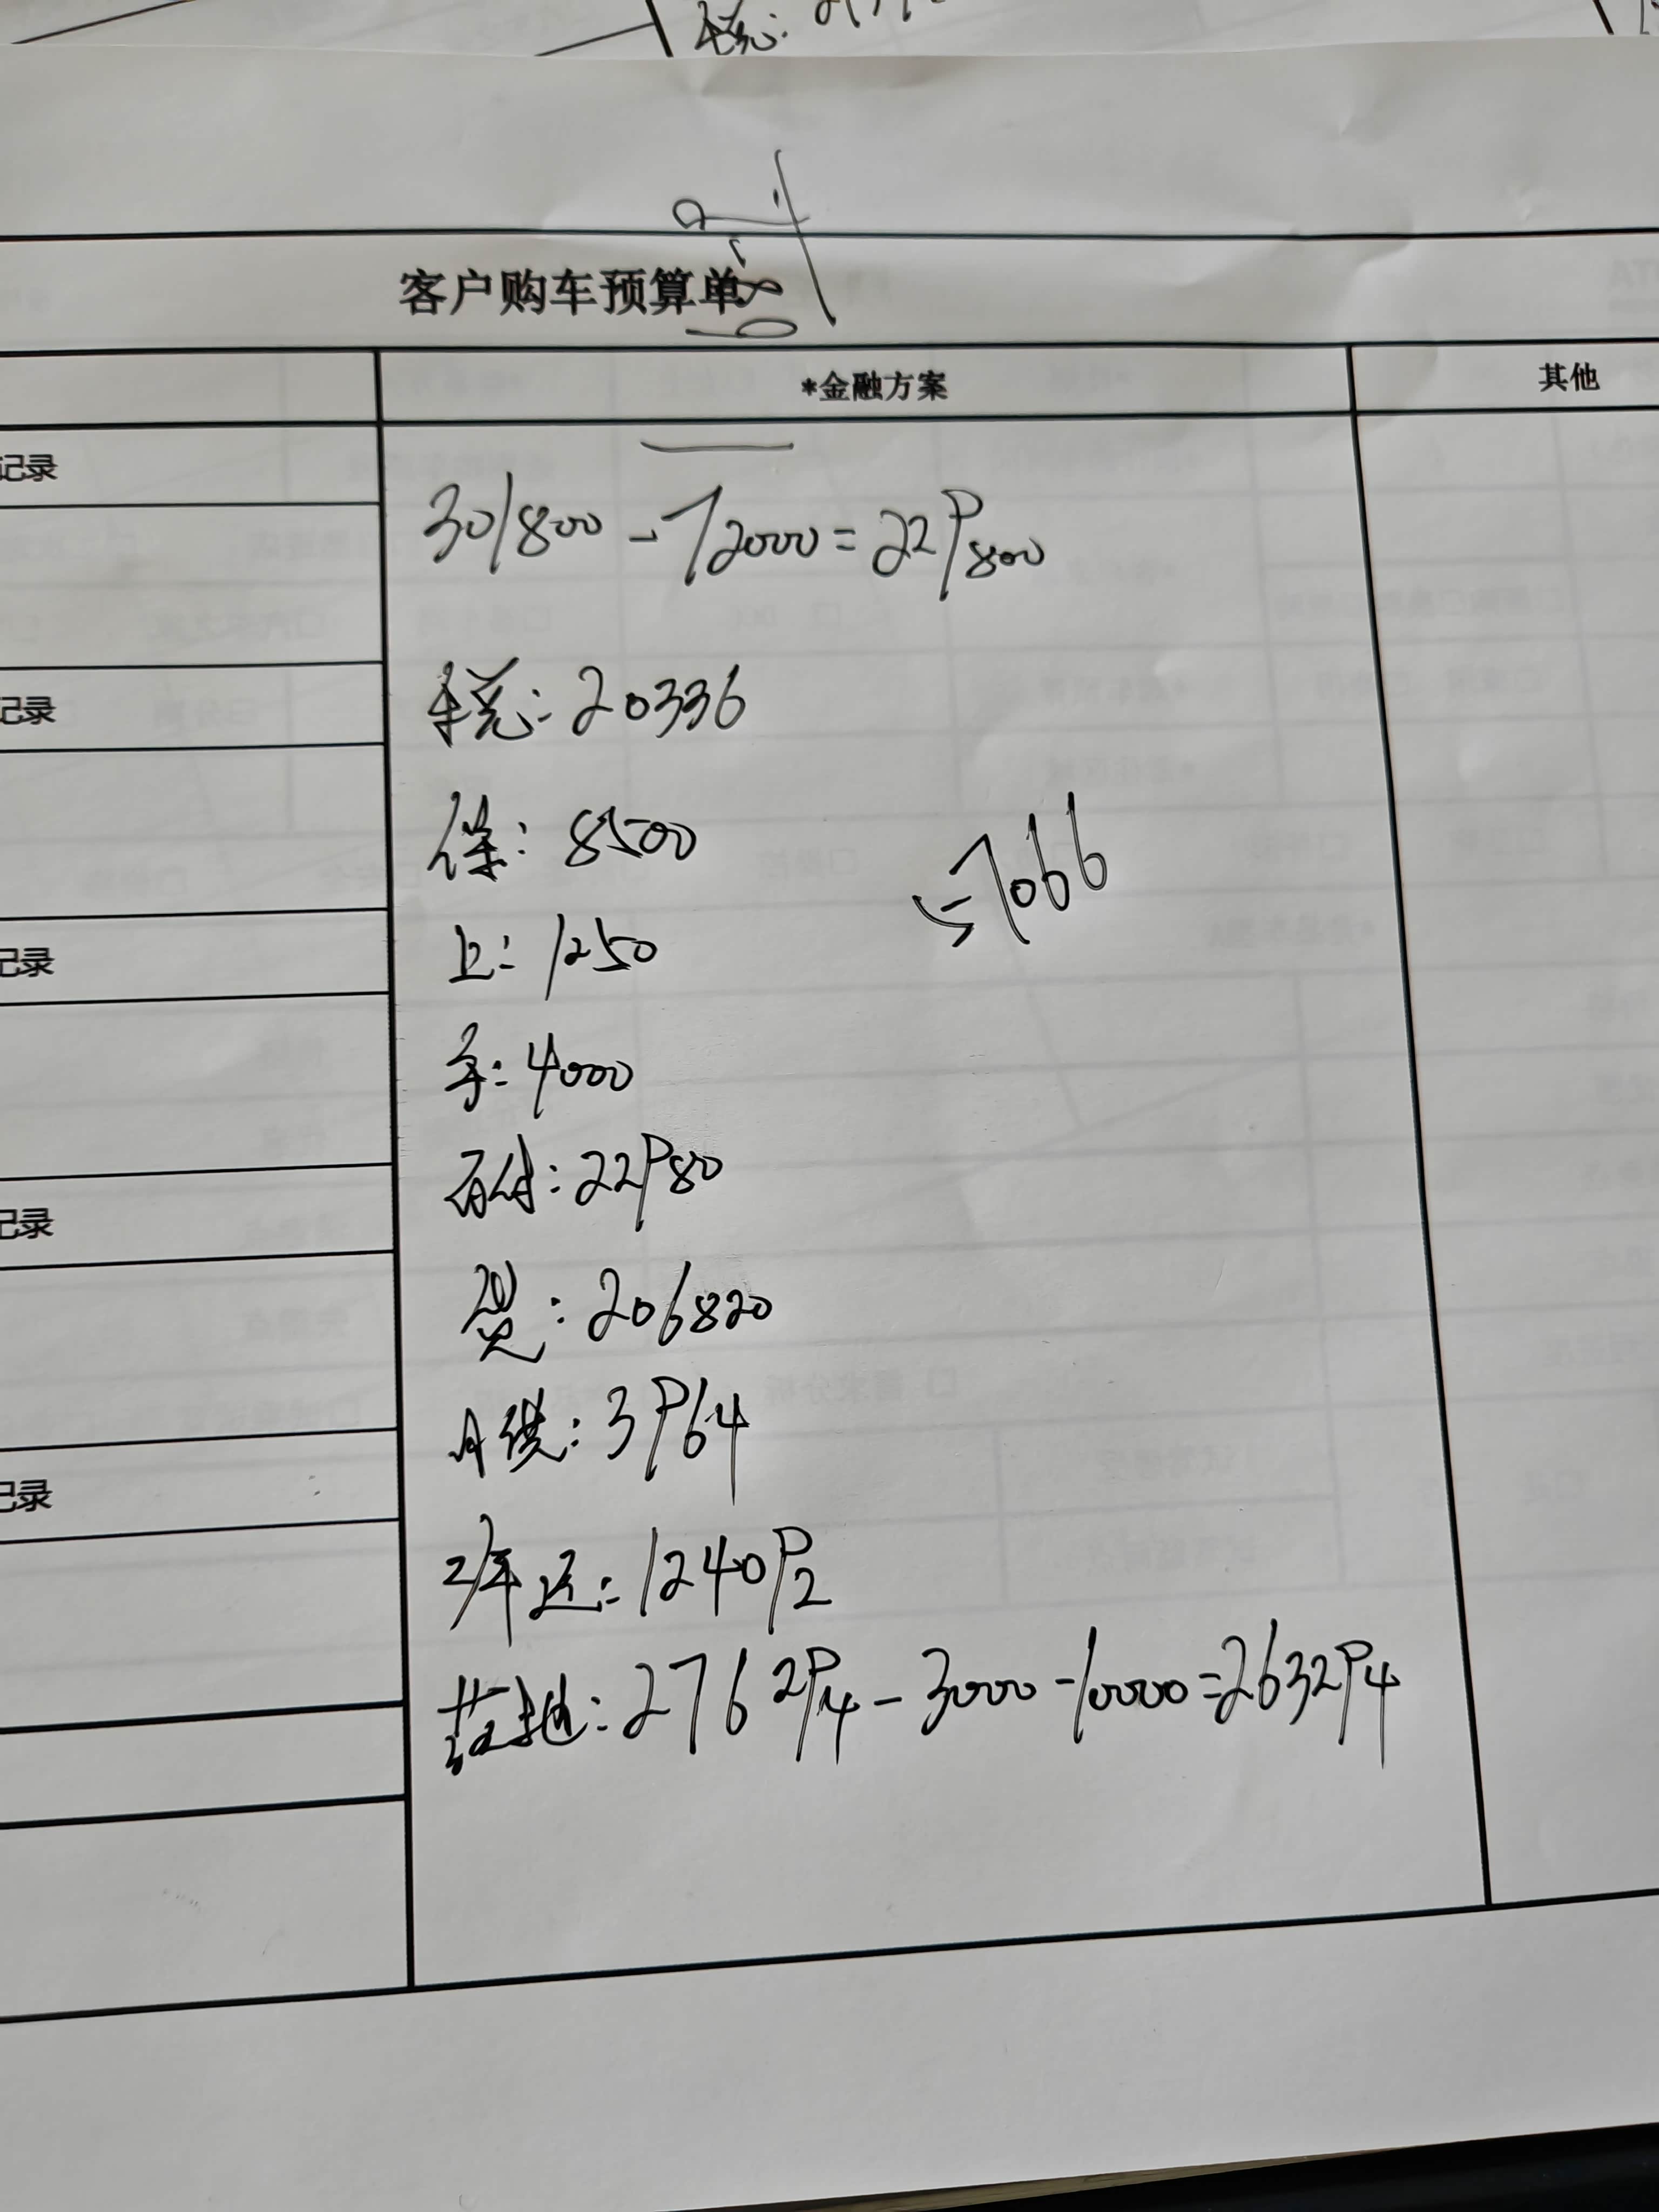 客户购车预算单
*金融方案
其他
记录
301800-72000=229800
车税:20336
记录
保:8500
=57066
上:1250
记录
手:4000
首付:22980
记录
贷:206820
月供:3964
记录
2年还:124092
落地:276294-3000-10000=263294